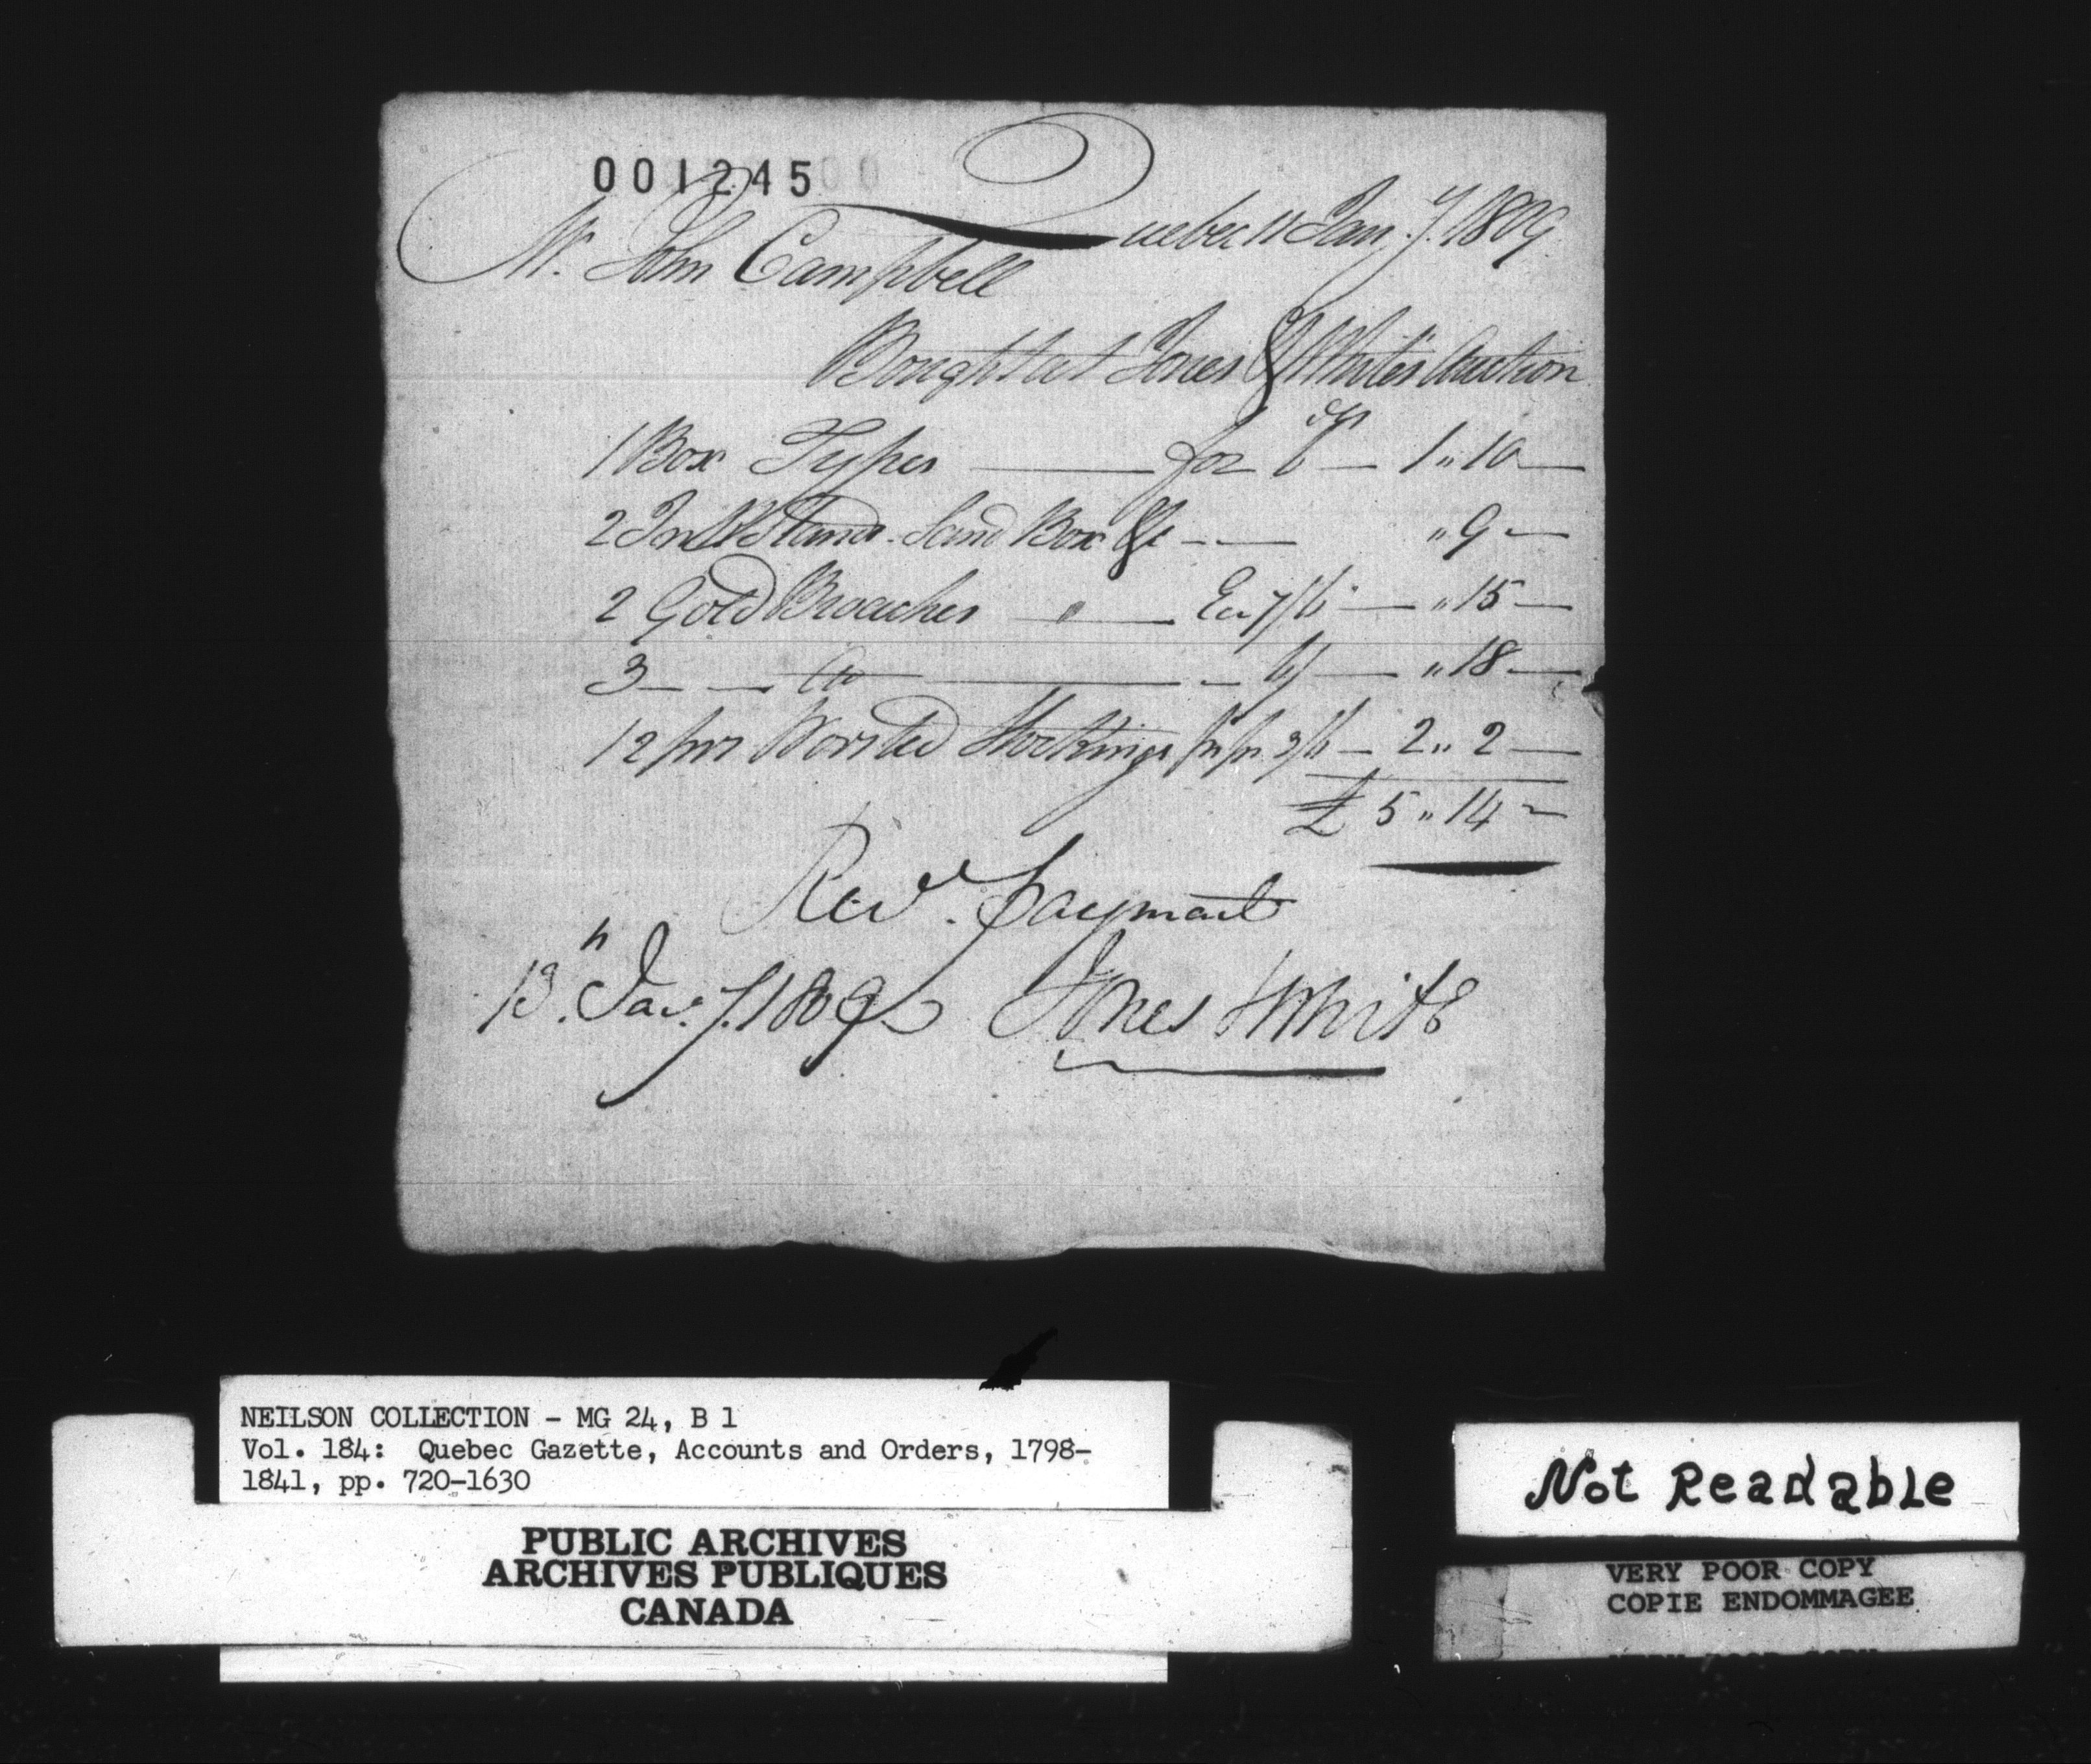 001245
Quebec 11 Jan.y 1809
Mr. John Campbell
Bought at Jones & White's Auction
1 Box Types — for — 1 " 10 —
2 Ink Stands. Sand Box &c — " 9 —
2 Gold Broaches — Ea 7/6 — " 15 —
3 — — Do — 6/ — " 18 —
12 prs Worsted Stockings pr pr 3/6 — 2 " 2 —
£ 5 " 14 —
Recd. payment
13th Jany. 1809 Jones & White
NEILSON COLLECTION - MG 24, B 1
Vol. 184: Quebec Gazette, Accounts and Orders, 1798-
1841, pp. 720-1630
PUBLIC ARCHIVES
ARCHIVES PUBLIQUES
CANADA
Not Readable
VERY POOR COPY
COPIE ENDOMMAGEE